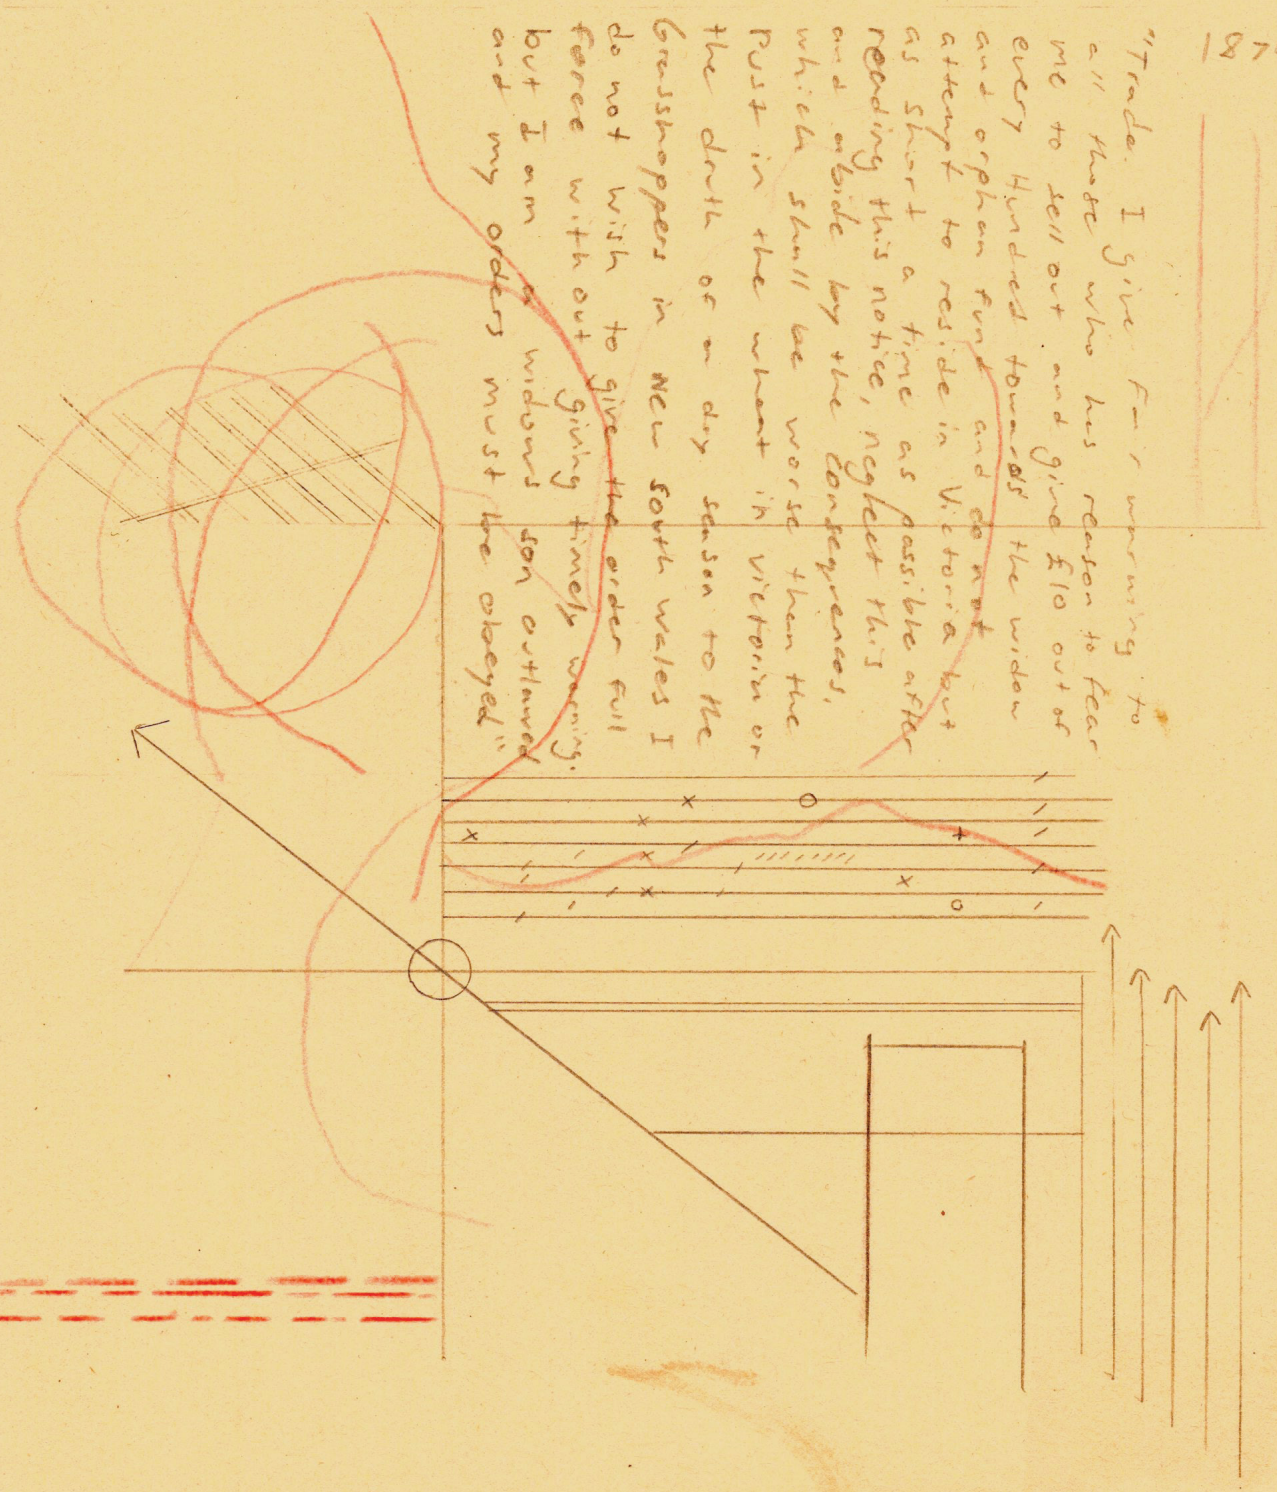 "Trade. I give fair warning to
all those who has reason to fear
me to sell out and give £10 out of
every Hundred towards the widow
and orphan fund and do not
attempt to reside in Victoria but
as short a time as possible after
reading this notice, neglect this
and abide by the consequences,
which shall be worse than the
rust in the wheat in Victoria or
the druth of a dry season to the
Grasshoppers in New South Wales I
do not wish to give the order full
force without giving timely warning.
but I am a widows son outlawed
and my orders must be obeyed"